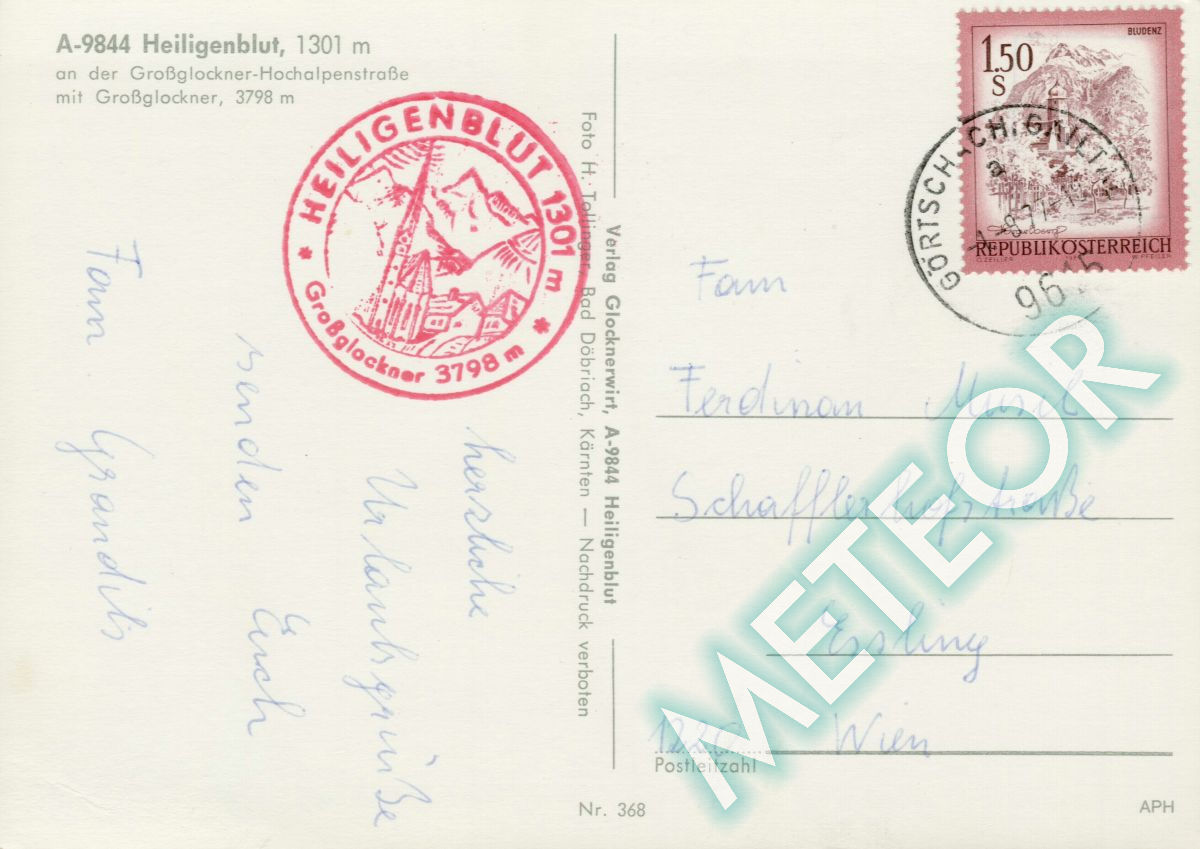 A-9844 Heiligenblut, 1301 m
an der Großglockner-Hochalpenstraße
mit Großglockner, 3798 m
HEILIGENBLUT 1301 m
* Großglockner 3798 m *
herzliche
Urlaubsgrüße
senden Euch
Fam Grandits
Foto H. Tollinger, Bad Döbriach, Kärnten — Nachdruck verboten
Verlag Glocknerwirt, A-9844 Heiligenblut
BLUDENZ
1.50
S
REPUBLIK ÖSTERREICH
O. ZEILLER
W. PFEILER
GÖRTSCHACH, GAILTAL
a
9615
Fam
Ferdinan Musil
Schafflerhofstraße
Essling
1220 Wien
Postleitzahl
Nr. 368
APH
METEOR